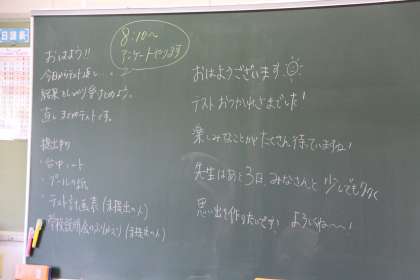 おはよう!!
今日からテスト返し。
結果をしっかり受けとめよう。
直しまでがテストです。
提出物
・台中ノート
・プールの紙
・テスト計画表(未提出の人)
・学校説明会のふりかえり(未提出の人)
8:10~
アンケートやります
おはようございます
テストおつかれさまでした!
楽しみなことがたくさん待ていますね!
先生はあと3日、みなさんと少しでも多く
思い出を作りたいです! よろしくね〜〜!